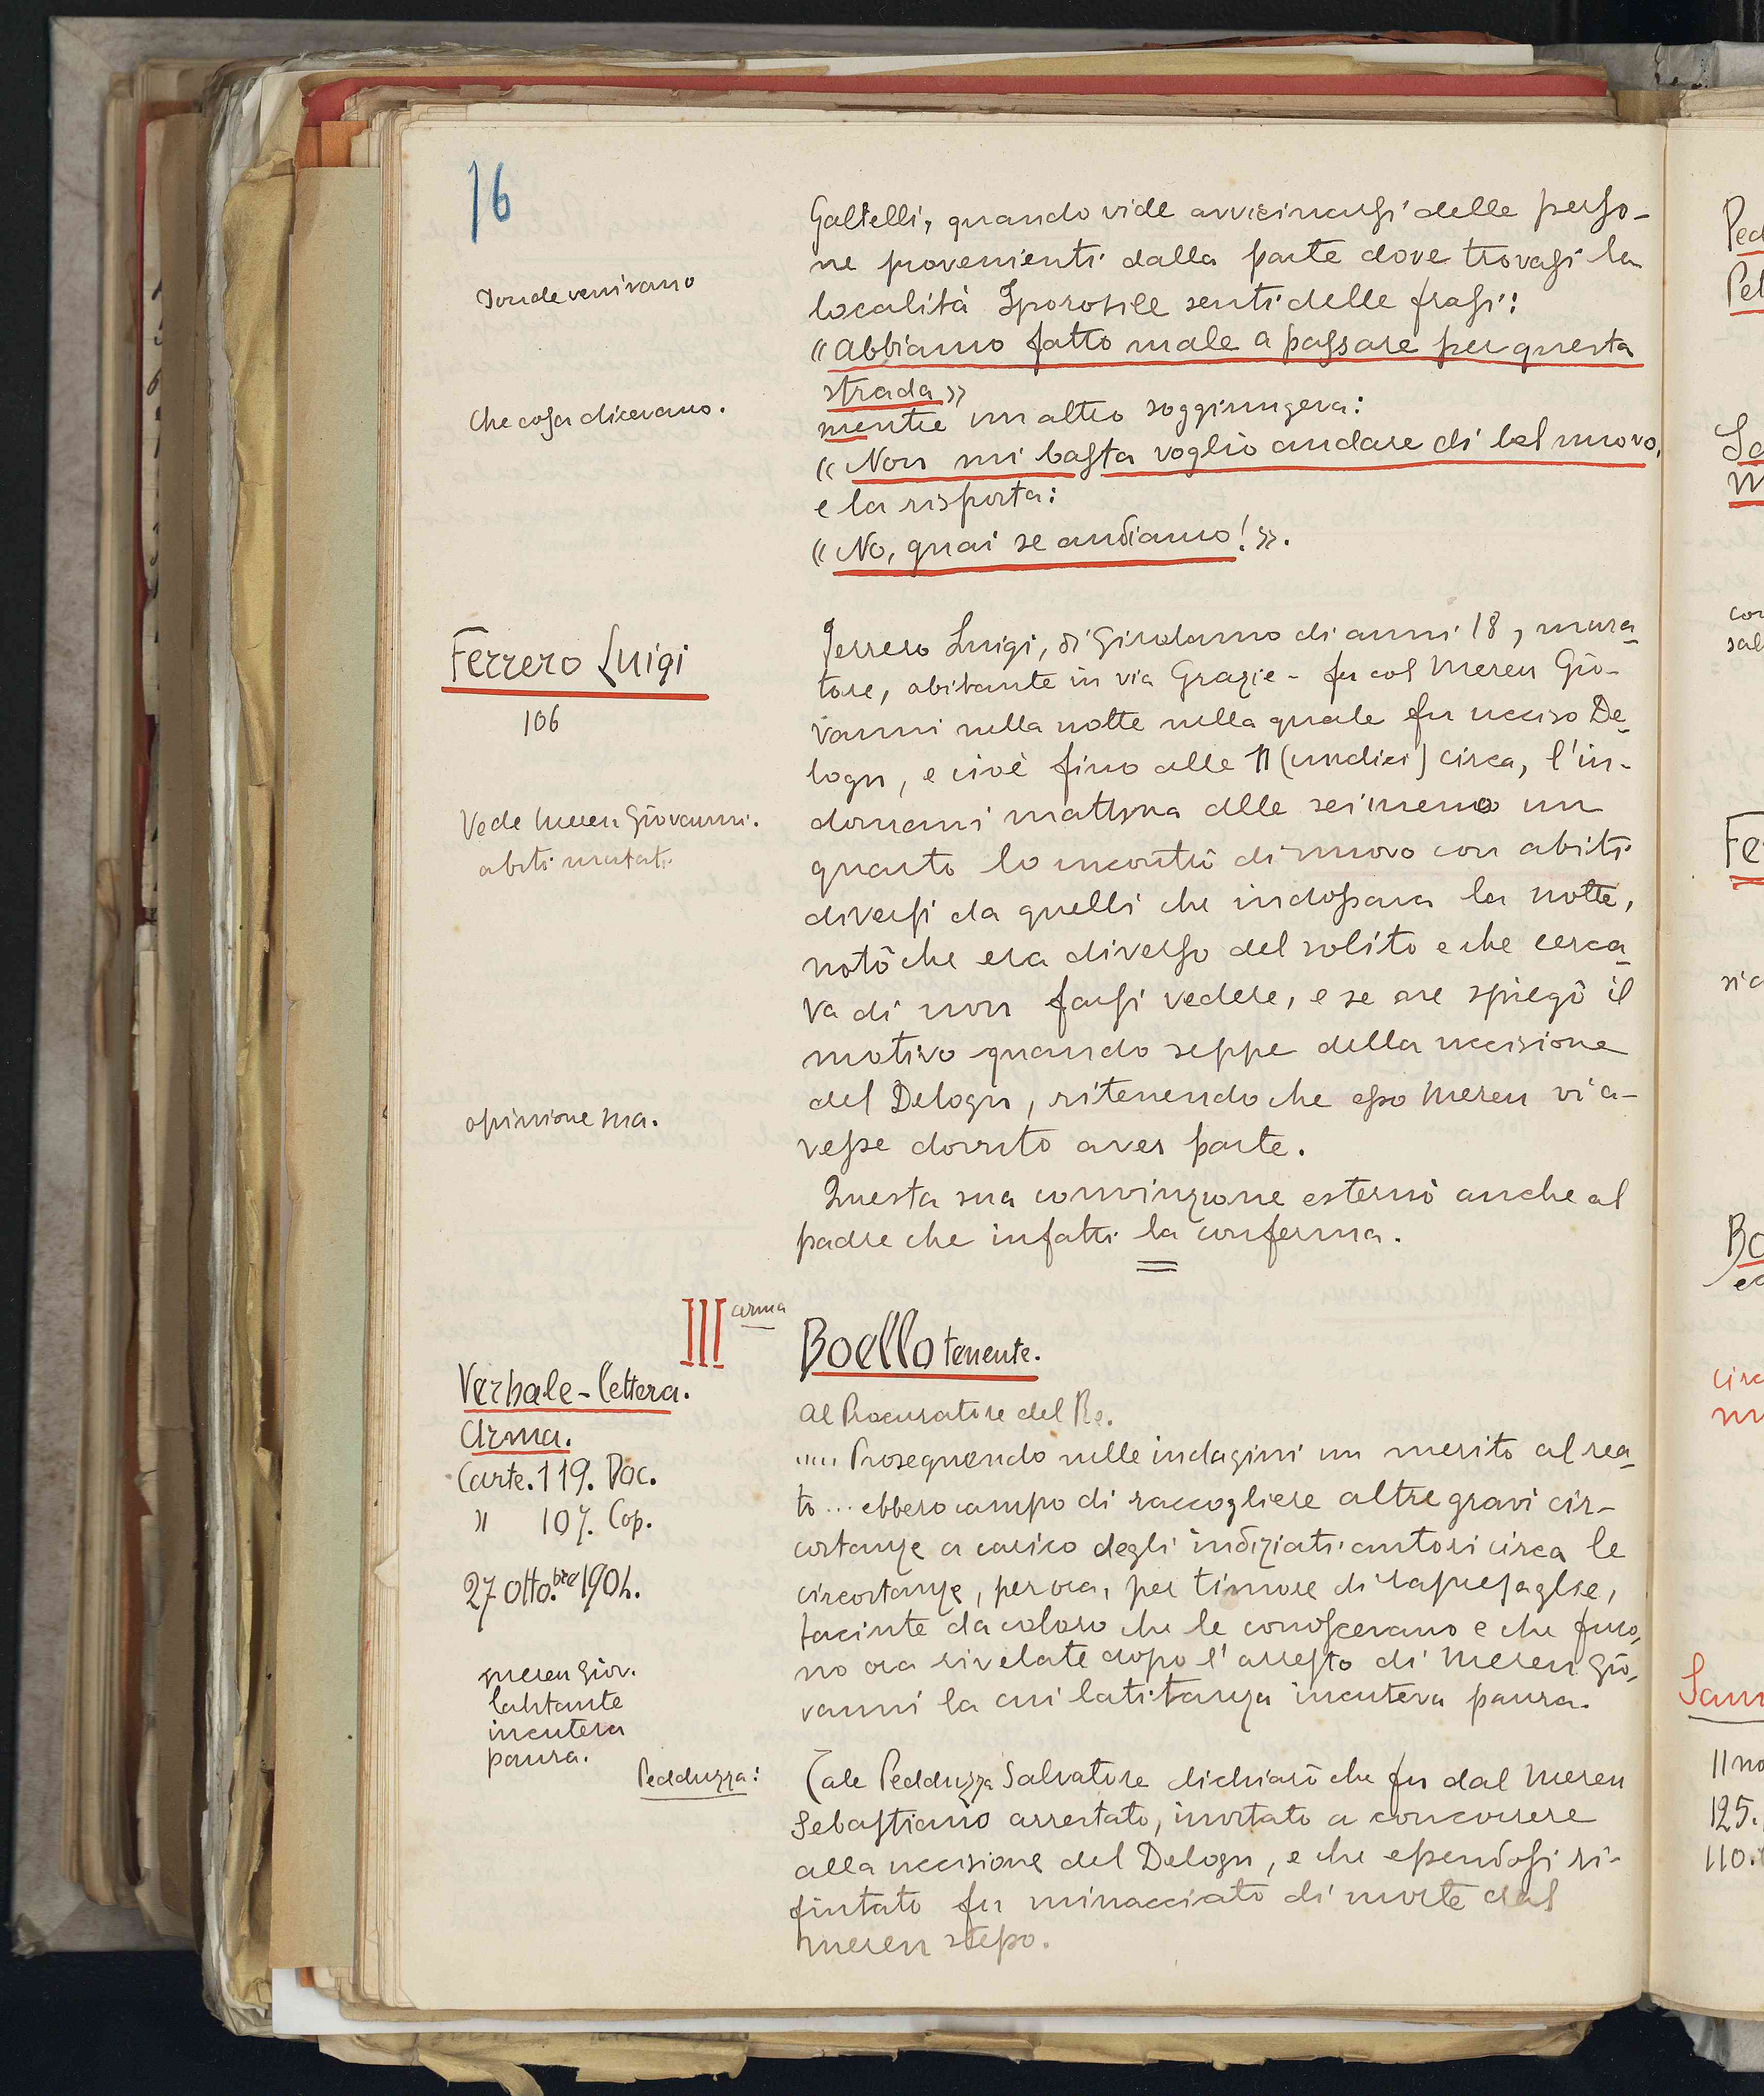 16
Galtelli, quando vide avvicinarsi delle perso-
ne provenienti dalla parte dove trovasi la
Donde venivano
località Iporosile sentì delle frasi:
« Abbiamo fatto male a passare per questa
strada »
Che cosa dicevano.
mentre un altro soggiungeva:
« Non mi basta voglio andare di bel nuovo,
e la risposta:
« No, guai se andiamo! ».
Ferrero Luigi
106
Ferrero Luigi, di Girolamo di anni 18, mura-
tore, abitante in via Grazie - fu col Mereu Gio-
vanni nella notte nella quale fu ucciso De-
logu, e cioè fino alle 11 (undici) circa, l'in-
Vede Mereu Giovanni.
abiti mutati
domani mattina alle sei meno un
quarto lo incontrò di nuovo con abiti
diversi da quelli che indossava la notte,
notò che era diverso del solito e che cerca-
va di non farsi vedere, e se ne spiegò il
motivo quando seppe della uccisione
opinione sua.
del Delogu, ritenendo che esso Mereu vi a-
vesse dovuto aver parte.
Questa sua convinzione esternò anche al
padre che infatti la conferma.
III arma
Boello tenente.
Verbale-lettera.
Arma.
Carte. 119. Doc.
" 107. Cop.
27 Otto.bre 1904.
Al Procuratore del Re.
..... Proseguendo nelle indagini un merito al rea-
to ... ebbero campo di raccogliere altre gravi cir-
costanze a carico degli indiziati autori circa le
circostanze, per ora, per timore di rapresaglie,
taciute da coloro che le conoscevano e che furo-
no ora rivelate dopo l'arresto di Mereu Gio-
vanni la cui latitanza incuteva paura.
Mereu Giov.
latitante
incuteva
paura.
Pedduzza:
Tale Pedduzza Salvatore dichiarò che fu dal Mereu
Sebastiano arrestato, invitato a concorrere
alla uccisione del Delogu, e che essendosi ri-
fiutato fu minacciato di morte dal
Mereu stesso.
Fe
Bo
11 no
125.
110.